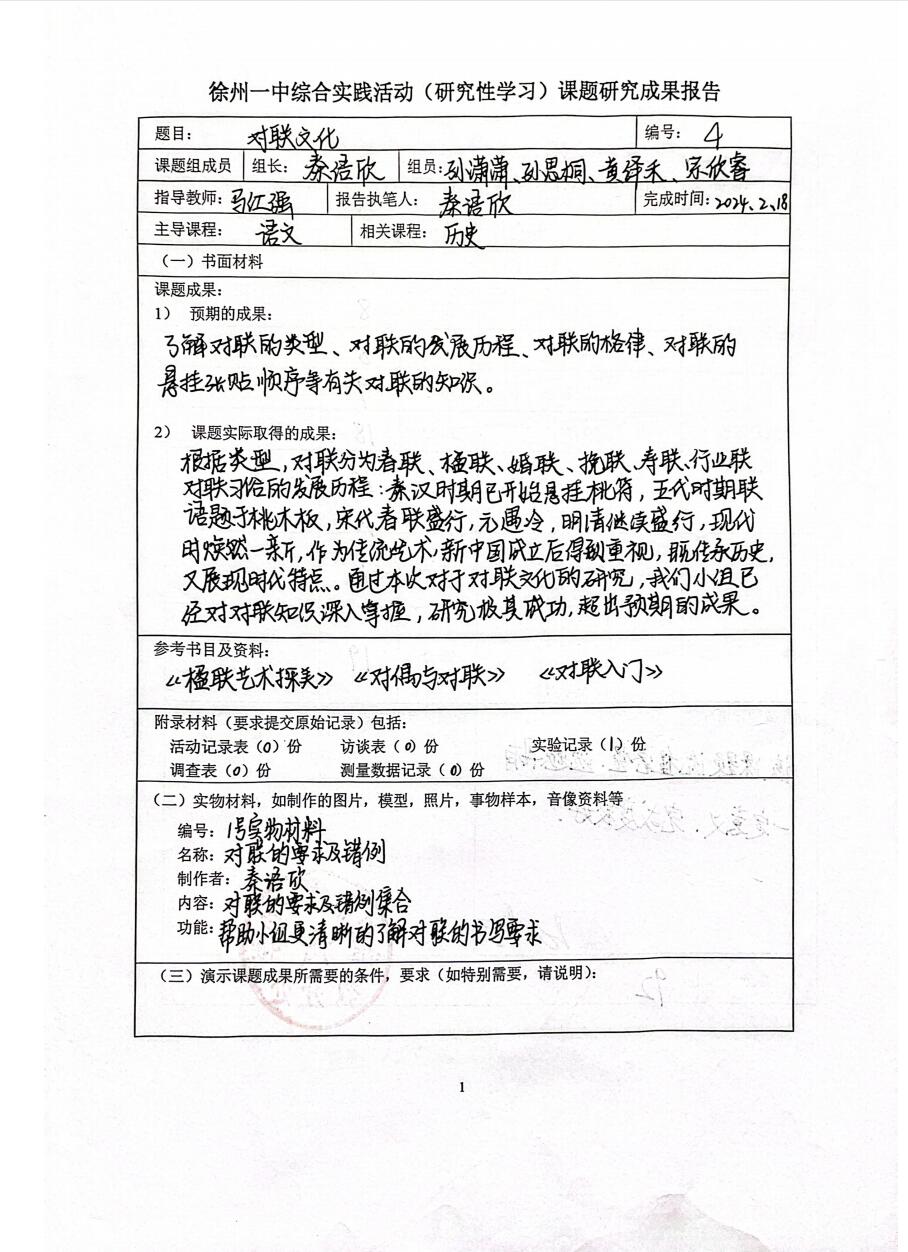 徐州一中综合实践活动（研究性学习）课题研究成果报告
题目： 对联文化 编号： 4
课题组成员 组长： 秦语欣 组员：孙潇潇、孙思桐、黄绎禾、宋欣睿
指导教师：马江强 报告执笔人： 秦语欣 完成时间：2024.2.18
主导课程： 语文 相关课程： 历史
（一）书面材料
课题成果：
1） 预期的成果：
了解对联的类型、对联的发展历程、对联的格律、对联的
悬挂张贴顺序等有关对联的知识。
2） 课题实际取得的成果：
根据类型，对联分为春联、楹联、婚联、挽联、寿联、行业联
对联习俗的发展历程：秦汉时期已开始悬挂桃符，五代时期联
语题于桃木板，宋代春联盛行，元遇冷，明清继续盛行，现代
时焕然一新，作为传统艺术，新中国成立后得到重视，既传承历史，
又展现时代特点。通过本次对于对联文化的研究，我们小组已
经对对联知识深入掌握，研究极其成功，超出预期的成果。
参考书目及资料：
《楹联艺术探美》 《对偶与对联》 《对联入门》
附录材料（要求提交原始记录）包括：
活动记录表（0）份 访谈表（0）份 实验记录（1）份
调查表（0）份 测量数据记录（0）份
（二）实物材料，如制作的图片，模型，照片，事物样本，音像资料等
编号： 1号实物材料
名称： 对联的要求及错例
制作者： 秦语欣
内容： 对联的要求及错例集合
功能： 帮助小组更清晰的了解对联的书写要求
（三）演示课题成果所需要的条件，要求（如特别需要，请说明）：
1